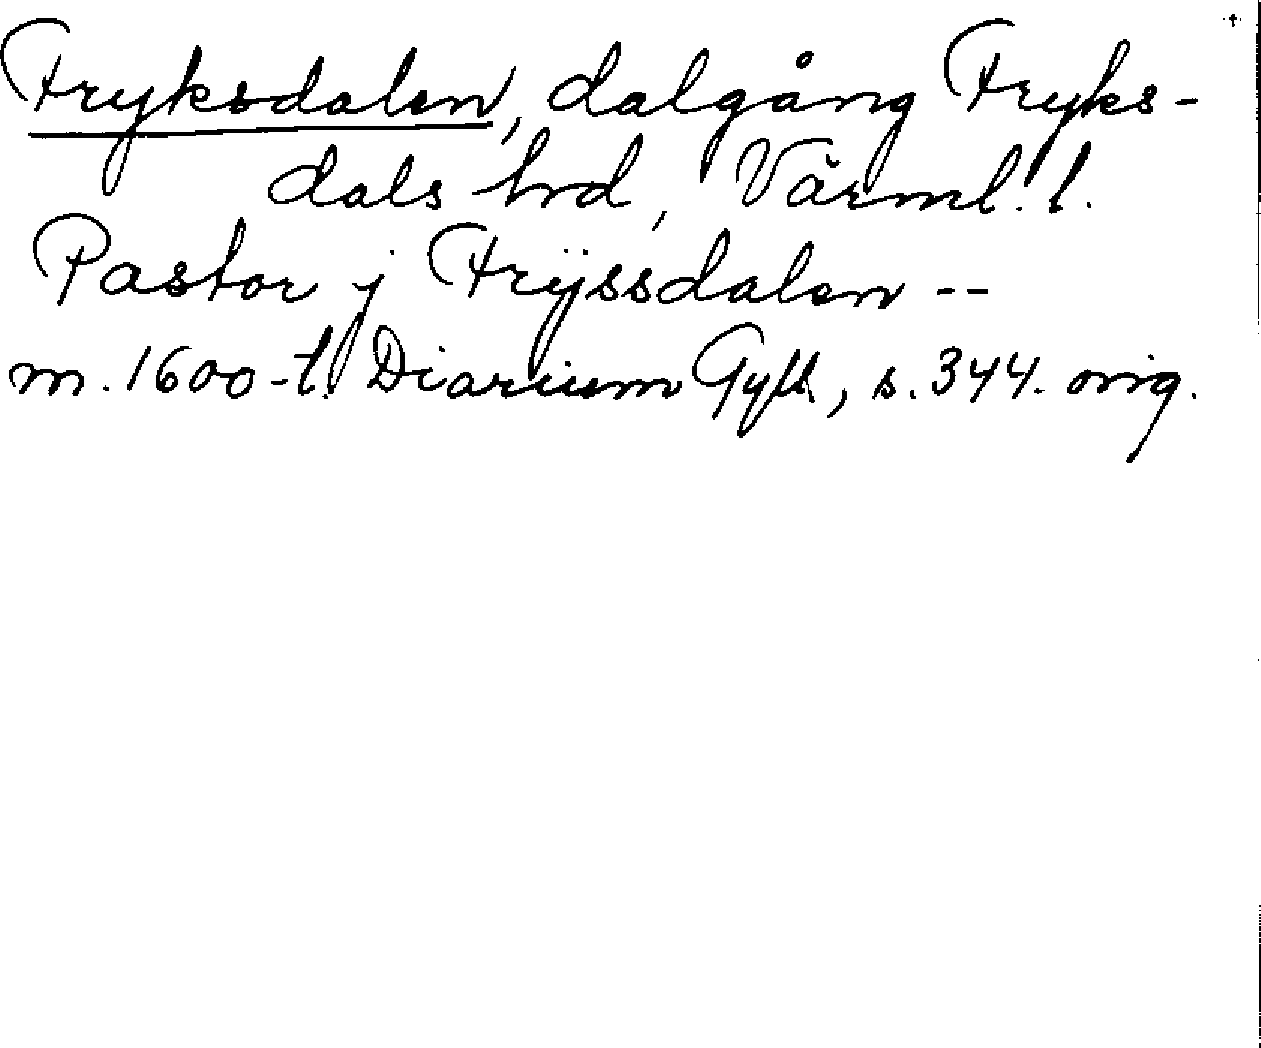 Fryksdalen, dalgång Fryks-
dals hrd, Värml. l.
Pastor j Frÿssdalen --
m. 1600-t. Diarium Gyll., s. 344. orig.